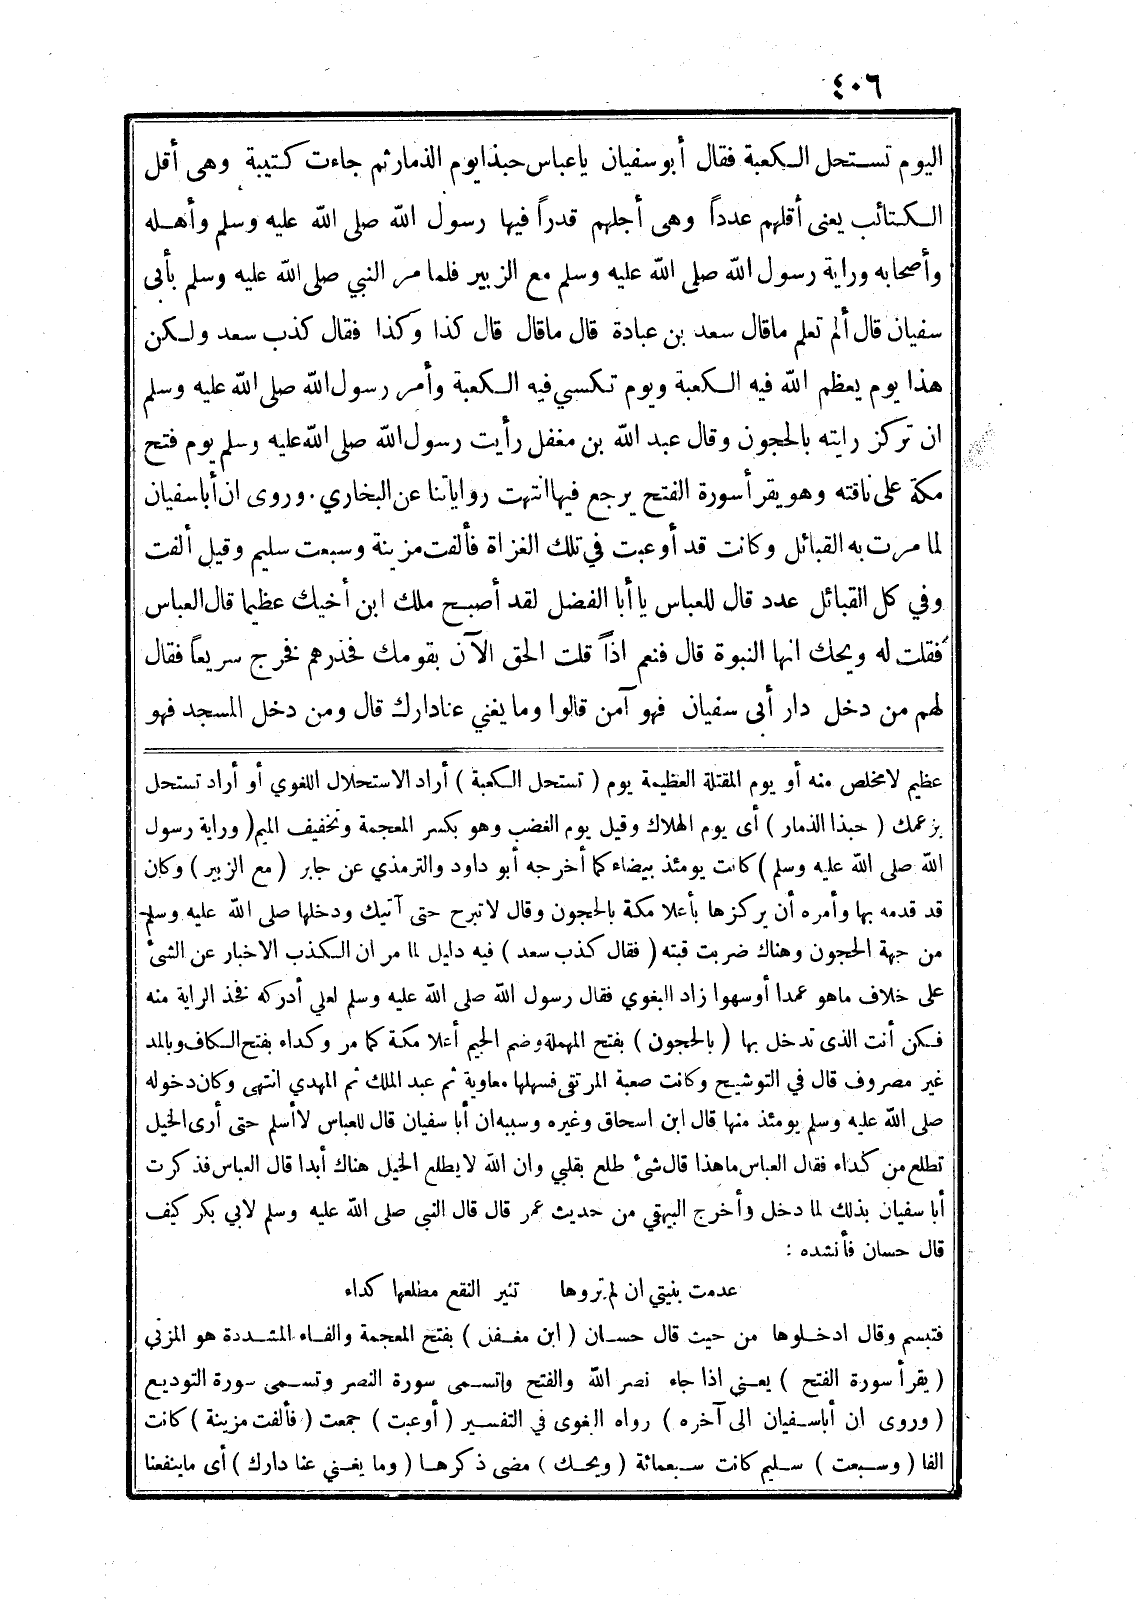 ٤٠٦
اليوم تستحل الكعبة فقال أبو سفيان ياعباس حبذا يوم الذمار ثم جاءت كتيبة وهى أقل
الكتائب يعنى أقلهم عدداً وهى أجلهم قدراً فيها رسول الله صلى الله عليه وسلم وأهله
وأصحابه وراية رسول الله صلى الله عليه وسلم مع الزبير فلما مر النبي صلى الله عليه وسلم بأبى
سفيان قال ألم تعلم ماقال سعد بن عبادة قال ماقال قال كذا وكذا فقال كذب سعد ولكن
هذا يوم يعظم الله فيه الكعبة ويوم تكسي فيه الكعبة وأمر رسول الله صلى الله عليه وسلم
ان تركز رايته بالحجون وقال عبد الله بن مغفل رأيت رسول الله صلى الله عليه وسلم يوم فتح
مكة على ناقته وهو يقرأ سورة الفتح يرجع فيها انتهت رواياتنا عن البخاري . وروى ان أبا سفيان
لما مرت به القبائل وكانت قد أوعبت في تلك الغزاة فألفت مزينة وسبعت سليم وقيل ألفت
وفي كل القبائل عدد قال للعباس يا أبا الفضل لقد أصبح ملك ابن أخيك عظيما قال العباس
فقلت له ويحك انها النبوة قال فنعم اذاً قلت الحق الآن بقومك فحذرهم فخرج سريعاً فقال
لهم من دخل دار أبى سفيان فهو آمن قالوا وما يغني عنا دارك قال ومن دخل المسجد فهو
عظيم لامخلص منه أو يوم المقتلة العظيمة يوم ( تستحل الكعبة ) أراد الاستحلال اللغوي أو أراد تستحل
بزعمك ( حبذا الذمار ) أى يوم الهلاك وقيل يوم الغضب وهو بكسر المعجمة وتخفيف الميم ( وراية رسول
الله صلى الله عليه وسلم ) كانت يومئذ بيضاء كما أخرجه أبو داود والترمذي عن جابر ( مع الزبير ) وكان
قد قدمه بها وأمره أن يركزها بأعلا مكة بالحجون وقال لاتبرح حتى آتيك ودخلها صلى الله عليه وسلم
من جهة الحجون وهناك ضربت قبته ( فقال كذب سعد ) فيه دليل لما مر ان الكذب الاخبار عن الشئ
على خلاف ماهو عمدا أوسهوا زاد البغوي فقال رسول الله صلى الله عليه وسلم لعلي أدركه فخذ الراية منه
فكن أنت الذى تدخل بها ( بالحجون ) بفتح المهملة وضم الجيم أعلا مكة كما مر وكداء بفتح الكاف وبالمد
غير مصروف قال في التوشيح وكانت صعبة المرتقى فسهلها معاوية ثم عبد الملك ثم المهدي انتهى وكان دخوله
صلى الله عليه وسلم يومئذ منها قال ابن اسحاق وغيره وسببه ان أبا سفيان قال للعباس لا أسلم حتى أرى الخيل
تطلع من كداء فقال العباس ماهذا قال شئ طلع بقلبي وان الله لا يطلع الخيل هناك أبدا قال العباس فذكرت
أبا سفيان بذلك لما دخل وأخرج البيهقي من حديث عمر قال قال النبى صلى الله عليه وسلم لابي بكر كيف
قال حسان فأنشده :
عدمت بنيتي ان لم تروها تثير النقع مطلعها كداء
فتبسم وقال ادخلوها من حيث قال حسان ( ابن مغفل ) بفتح المعجمة والفاء المشددة هو المزني
( يقرأ سورة الفتح ) يعني اذا جاء نصر الله والفتح وتسمى سورة النصر وتسمى سورة التوديع
( وروى ان أبا سفيان الى آخره ) رواه البغوى في التفسير ( أوعبت ) جمعت ( فألفت مزينة ) كانت
الفا ( وسبعت ) سليم كانت سبعمائة ( ويحك ) مضى ذكرها ( وما يغني عنا دارك ) أى ماينفعنا